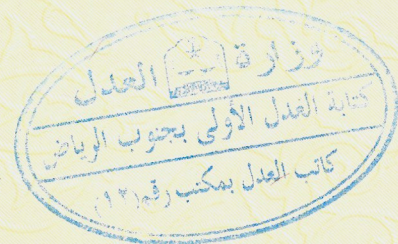 وزارة العدل
كتابة العدل الأولى بجنوب الرياض
كاتب العدل بمكتب رقم (٩٢)